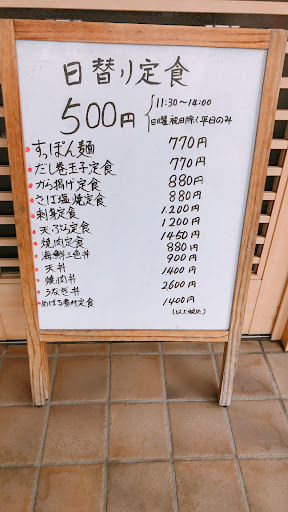 日替り定食
500円
11:30～14:00
日曜祝日除く平日のみ
すっぽん麺 770円
だし巻玉子定食 770円
から揚げ定食 880円
さば塩焼定食 880円
刺身定食 1,200円
天ぷら定食 1200円
焼肉定食 1450円
海鮮三色丼 880円
天丼 900円
焼肉丼 1400円
うなぎ丼 2600円
めばる煮付定食 1400円
(以上税込)